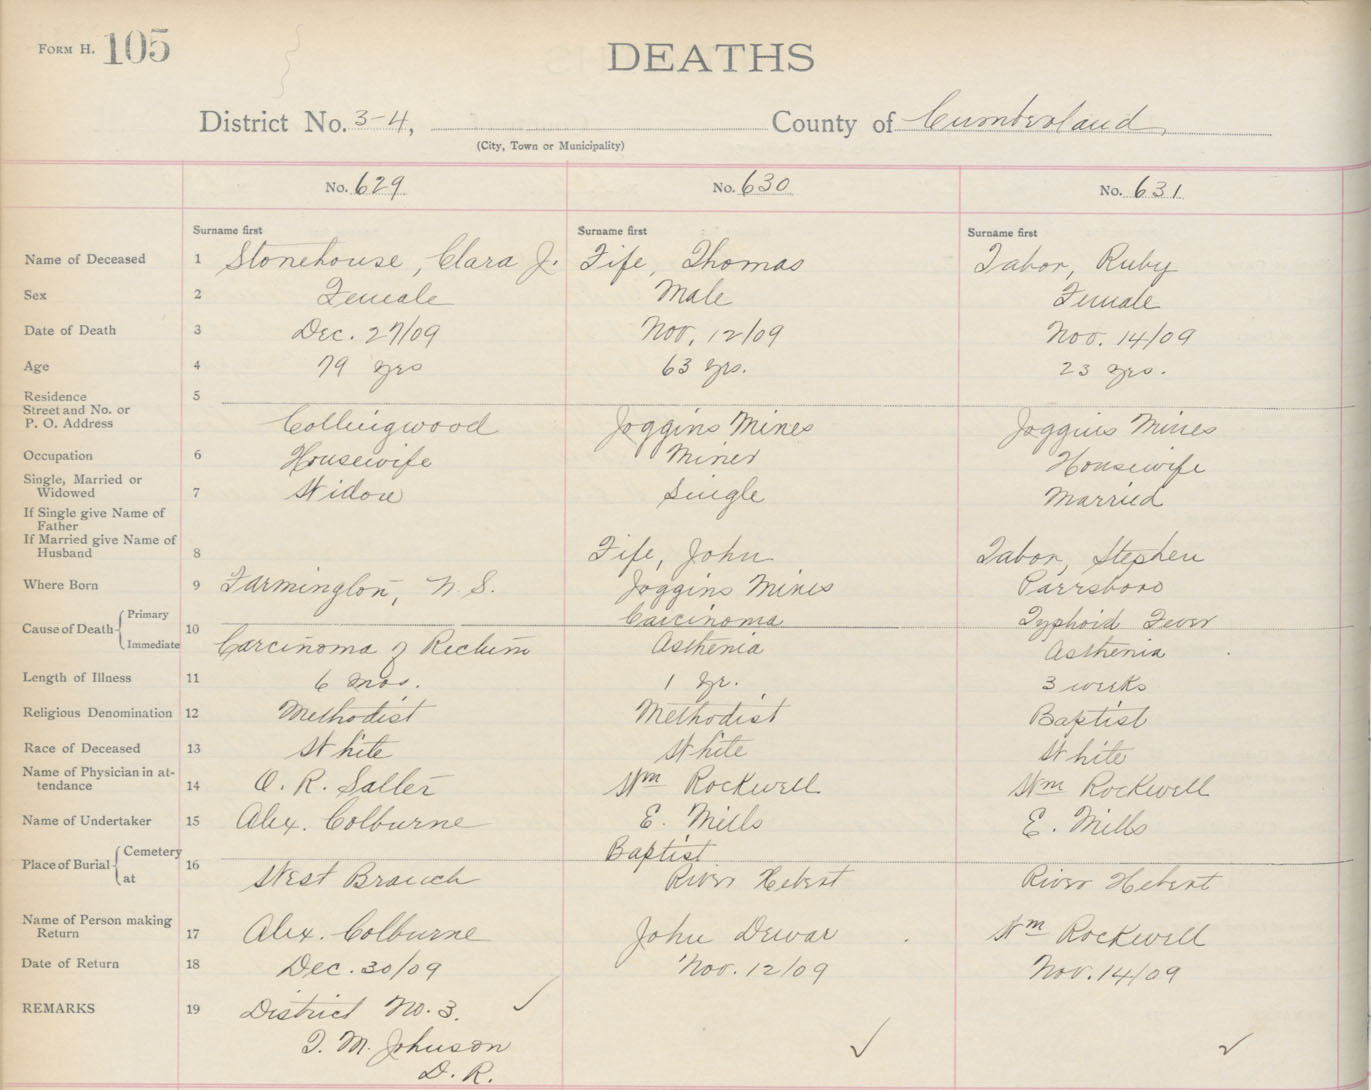 FORM H. 105
DEATHS
District No. 3-4, County of Cumberland
(City, Town or Municipality)
No. 629 No. 630 No. 631
Surname first Surname first Surname first
Name of Deceased 1 Stonehouse, Clara J. Fife, Thomas Tabor, Ruby
Sex 2 Female Male Female
Date of Death 3 Dec. 27/09 Nov. 12/09 Nov. 14/09
Age 4 79 yrs 63 yrs. 23 yrs.
Residence 5
Street and No. or
P. O. Address Collingwood Joggins Mines Joggins Mines
Occupation 6 Housewife Miner Housewife
Single, Married or
Widowed 7 Widow Single Married
If Single give Name of
Father
If Married give Name of
Husband 8 Fife, John Tabor, Stephen
Where Born 9 Farmington, N.S. Joggins Mines Parrsboro
Cause of Death Primary 10 Carcinoma Typhoid Fever
Immediate Carcinoma of Rectum Asthenia Asthenia
Length of Illness 11 6 mos. 1 yr. 3 weeks
Religious Denomination 12 Methodist Methodist Baptist
Race of Deceased 13 White White White
Name of Physician in at-
tendance 14 O. R. Salter Wm Rockwell Wm Rockwell
Name of Undertaker 15 Alex. Colburne E. Mills E. Mills
Place of Burial Cemetery 16 Baptist
at West Branch River Hebert River Hebert
Name of Person making
Return 17 Alex. Colburne John Dewar Wm Rockwell
Date of Return 18 Dec. 30/09 Nov. 12/09 Nov. 14/09
REMARKS 19 District No. 3.
T. M. Johnson
D. R.